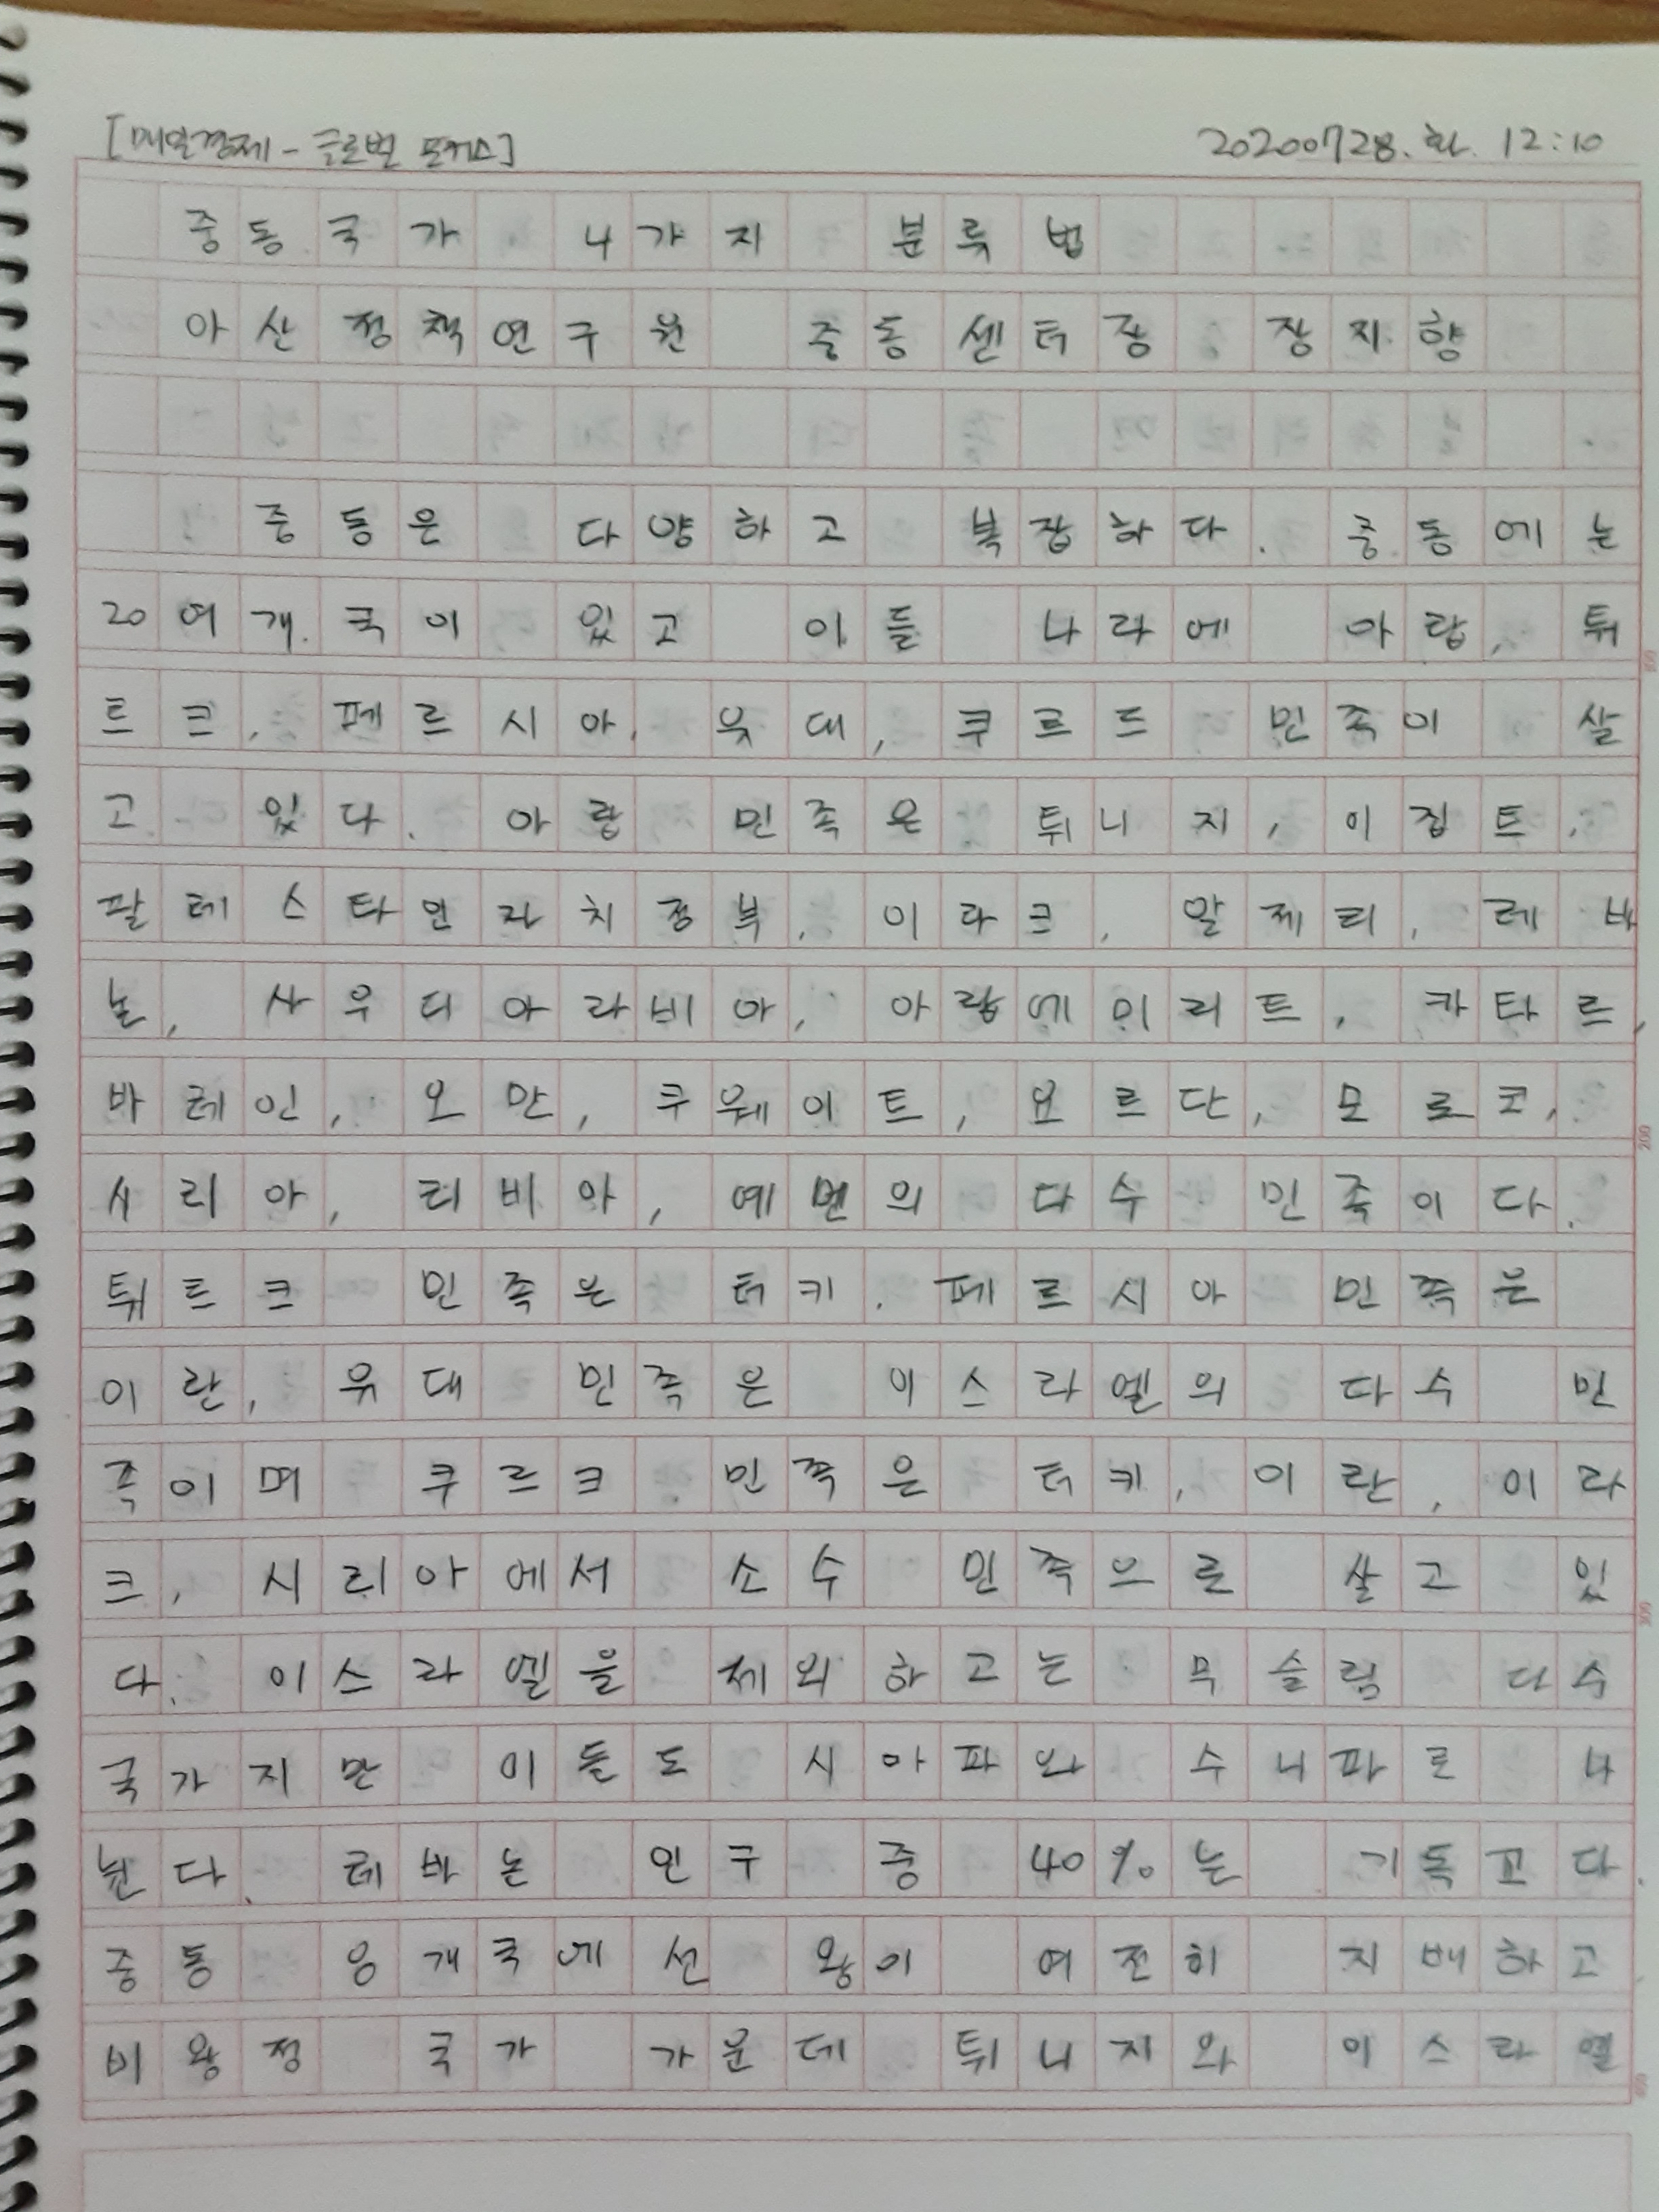 [매일경제 - 글로벌 포커스] 20200728. 화. 12:10
중동국가 4가지 분류법
아산정책연구원 중동센터장 장지향
중동은 다양하고 복잡하다. 중동에는
20여개국이 있고 이들 나라에 아랍, 튀
르크, 페르시아, 유대, 쿠르드 민족이 살
고 있다. 아랍 민족은 튀니지, 이집트,
팔레스타인자치정부, 이라크, 알제리, 레바
논, 사우디아라비아, 아랍에미리트, 카타르,
바레인, 오만, 쿠웨이트, 요르단, 모로코,
시리아, 리비아, 예멘의 다수 민족이다.
튀르크 민족은 터키, 페르시아 민족은
이란, 유대 민족은 이스라엘의 다수 민
족이며 쿠르크 민족은 터키, 이란, 이라
크, 시리아에서 소수 민족으로 살고 있
다. 이스라엘을 제외하고는 무슬림 다수
국가지만 이들도 시아파와 수니파로 나
뉜다. 레바논 인구 중 40%는 기독교다.
중동 8개국에선 왕이 여전히 지배하고
비왕정 국가 가운데 튀니지와 이스라엘